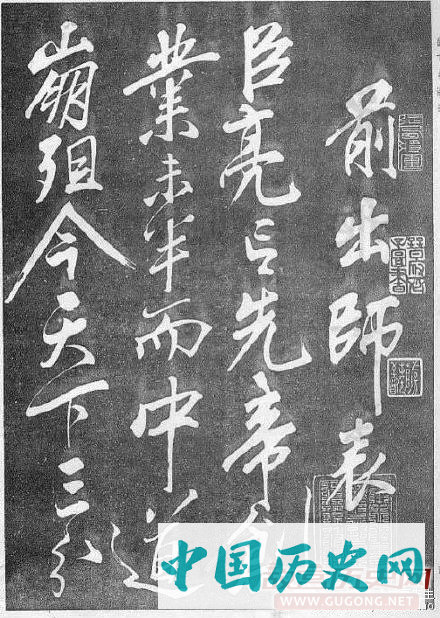 前出師表
臣亮言先帝創
業未半而中道
崩殂今天下三分
中国历史网
WWW.GUGONG.NET